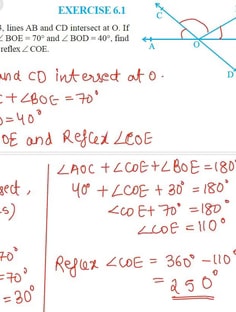 EXERCISE 6.1
, lines AB and CD intersect at O. If
∠ BOE = 70° and ∠ BOD = 40°, find
reflex ∠ COE.
C
A
O
D
and CD intersect at O.
C + ∠BOE = 70°
D = 40°
OE and Reflex ∠COE
∠AOC + ∠COE + ∠BOE = 180°
40° + ∠COE + 30° = 180°
∠COE + 70° = 180°
∠COE = 110°
sect,
s)
70°
= 70°
= 30°
Reflex ∠COE = 360° - 110°
= 250°